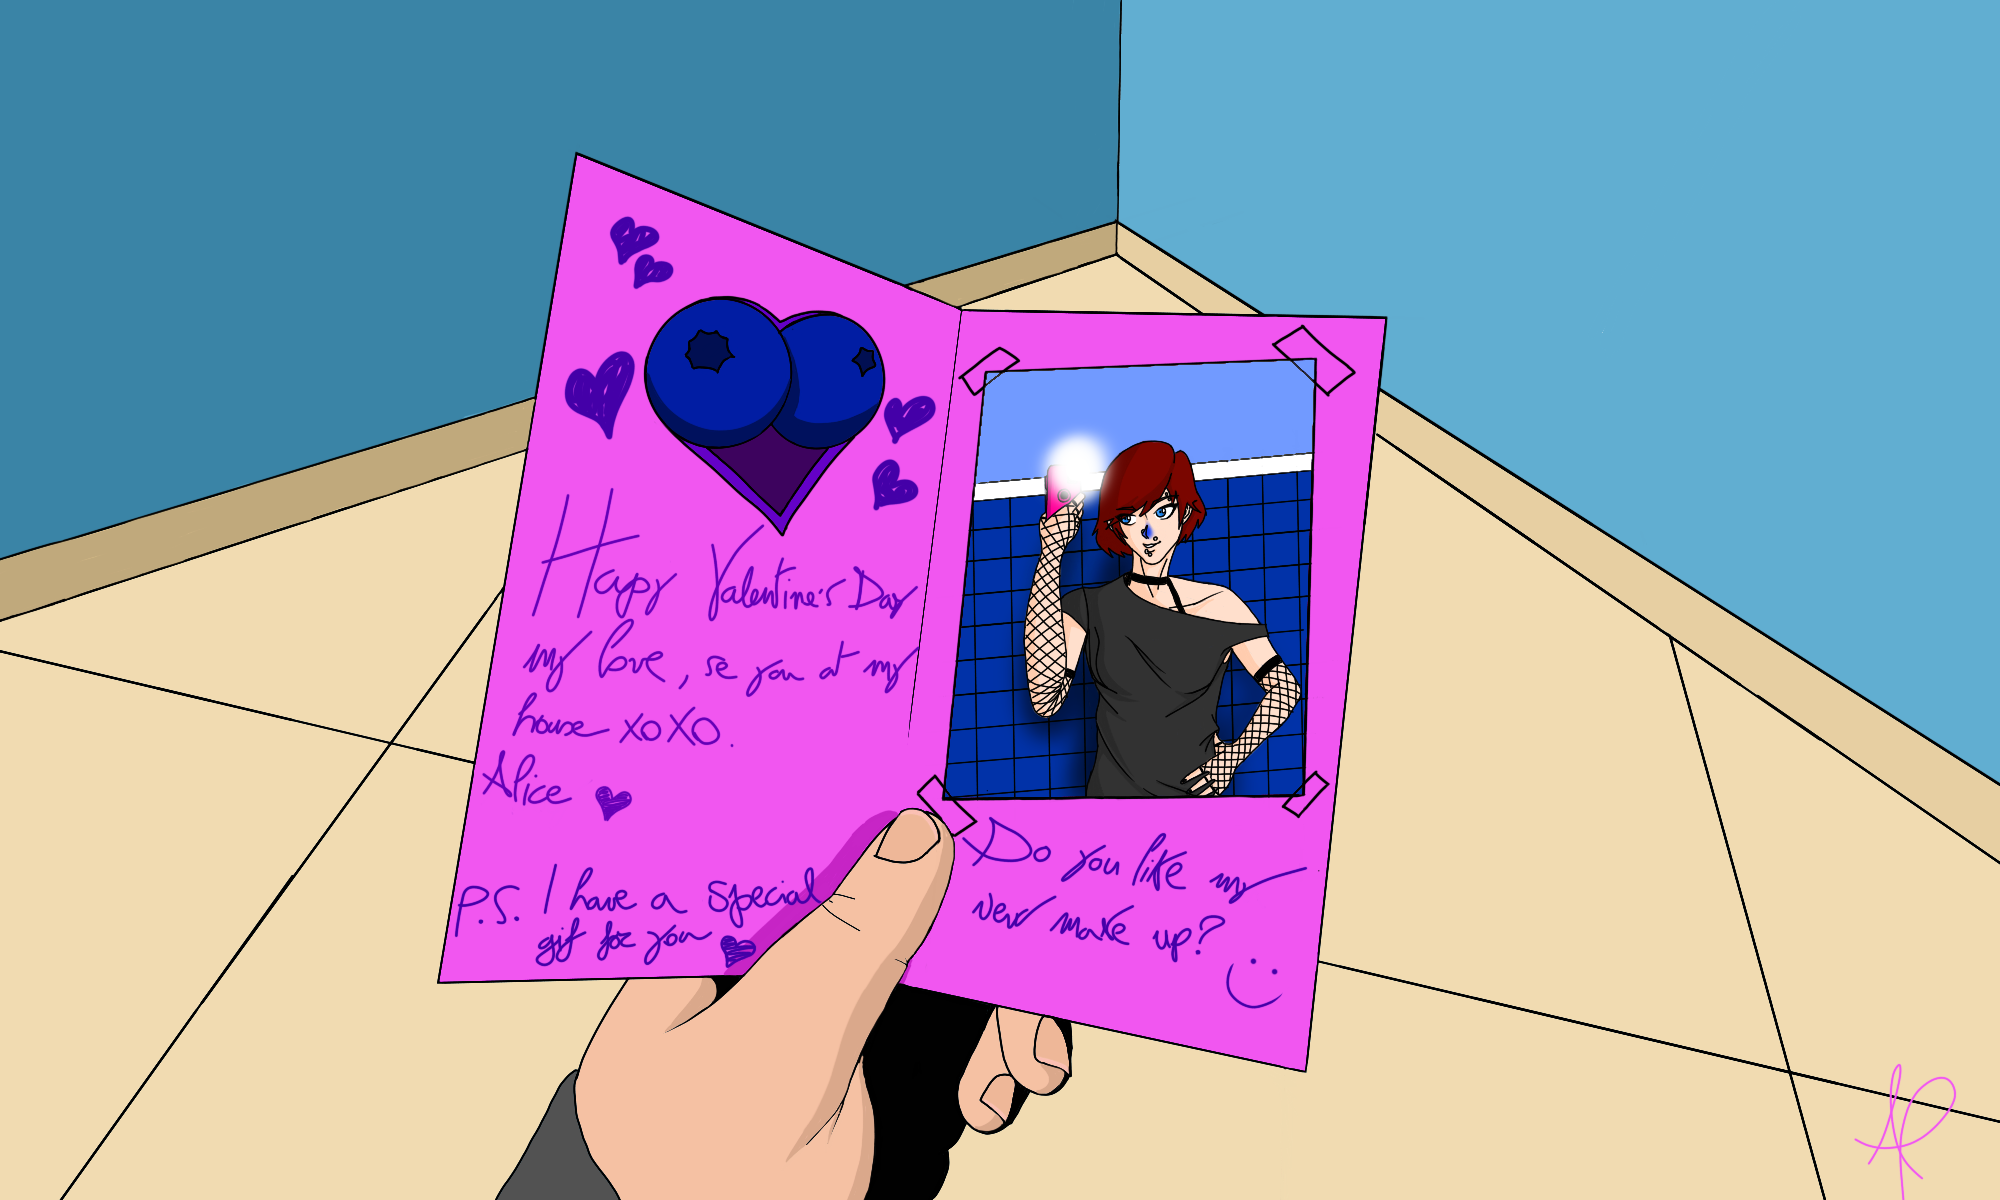 Happy Valentine's Day
my love, se you at my
house XOXO.
Alice
P.S. I have a special
gif for you
Do you like my
new make up?